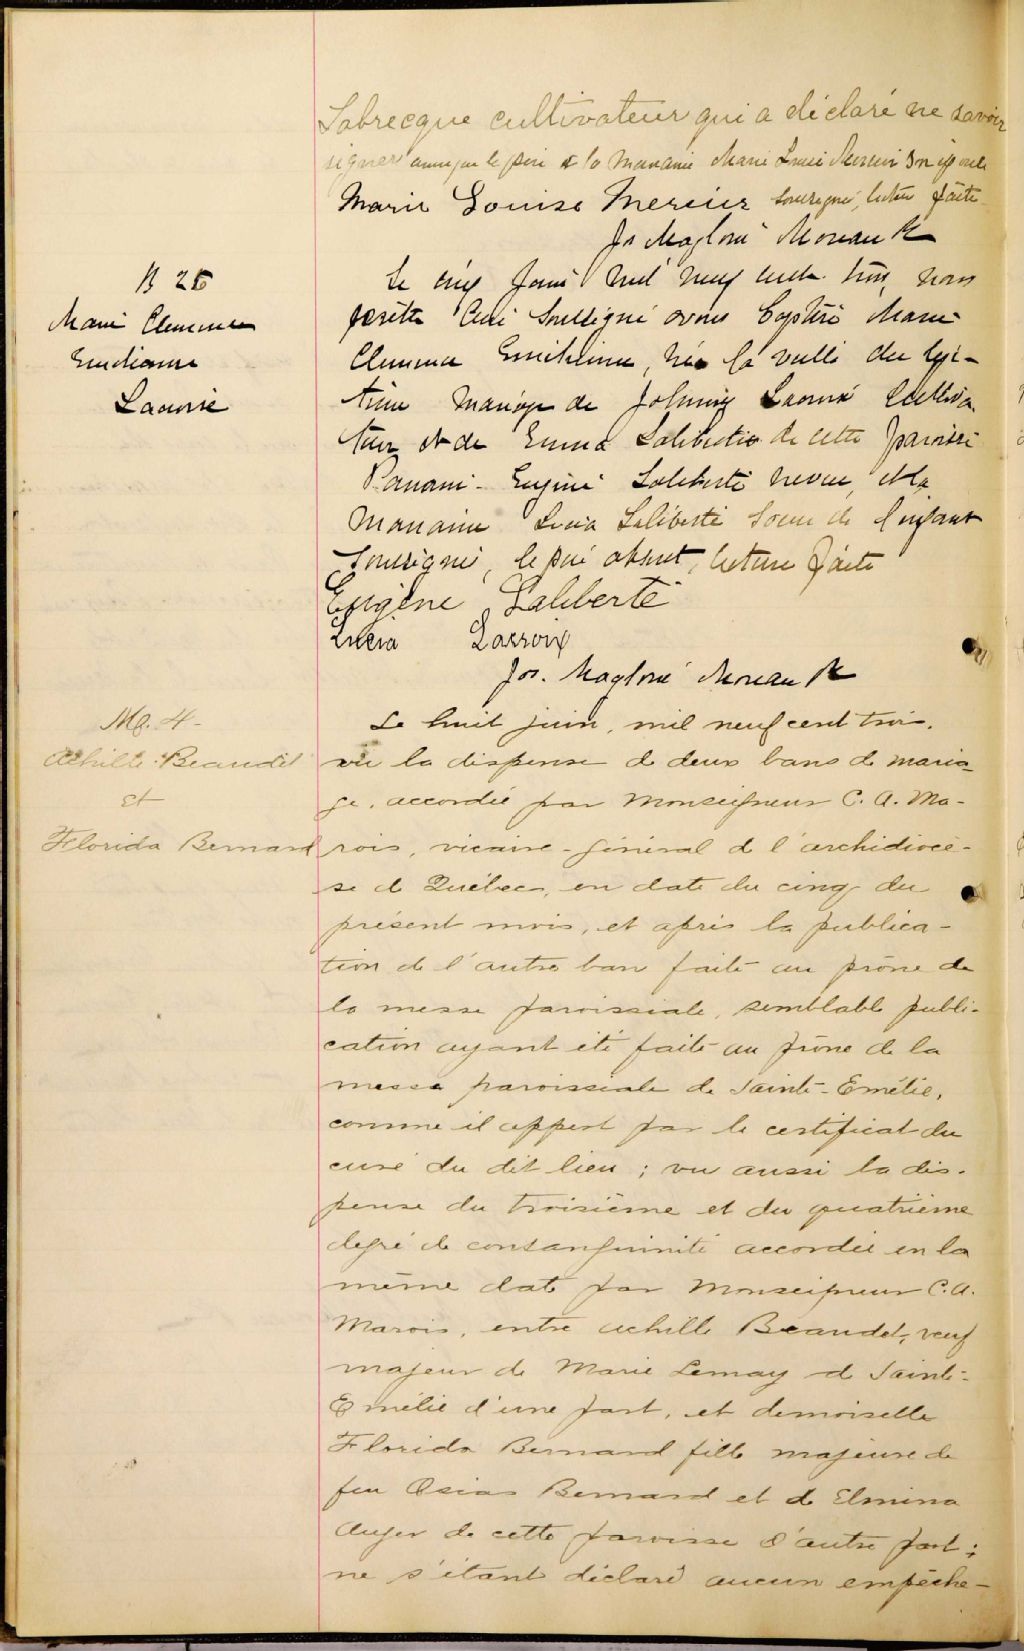 Labrecque cultivateur qui a déclaré ne savoir
signer ainsi que le père & la marraine Marie Louise Mercier son épouse
Marie Louise Mercier soussigné, lecture faite
Jos Magloire Moreau Ptr
Le cinq Juin mil neuf cent trois, nous
B 25
prêtre Curé soussigné avons baptisé Marie
Marie Clemence
Clemence née la veille du légi-
Lacroix
time mariage de Johnny Lacroix Cultiva-
teur et de Emma Laliberté de cette paroisse
Parrain - Eugène Laliberté neveu, et la
marraine Lucia Laliberté soeur de l'enfant
soussigné, le père absent, lecture faite
Eugène Laliberté
Lucia Lacroix
Jos. Magloire Moreau Ptr
Mg. 4-
Achille Beaudet
et
Florida Bernard
Le huit juin, mil neuf cent trois,
vu la dispense de deux bans de maria-
ge, accordée par Monseigneur C. A. Ma-
rois, vicaire-général de l'archidiocè-
se de Québec, en date du cinq du
présent mois, et après la publica-
tion de l'autre ban faite au prône de
la messe paroissiale, semblable publi-
cation ayant été faite au prône de la
messe paroissiale de Sainte-Emélie,
comme il appert par le certificat du
curé du dit lieu ; vu aussi la dis-
pense du troisième et du quatrième
degré de consanguinité accordée en la
même date par Monseigneur C. A.
Marois, entre Achille Beaudet, veuf
majeur de Marie Lemay de Sainte-
Emélie d'une part, et demoiselle
Florida Bernard fille majeure de
feu Osias Bernard et de Elmina
Auger de cette paroisse d'autre part ;
ne s'étant déclaré aucun empêche-